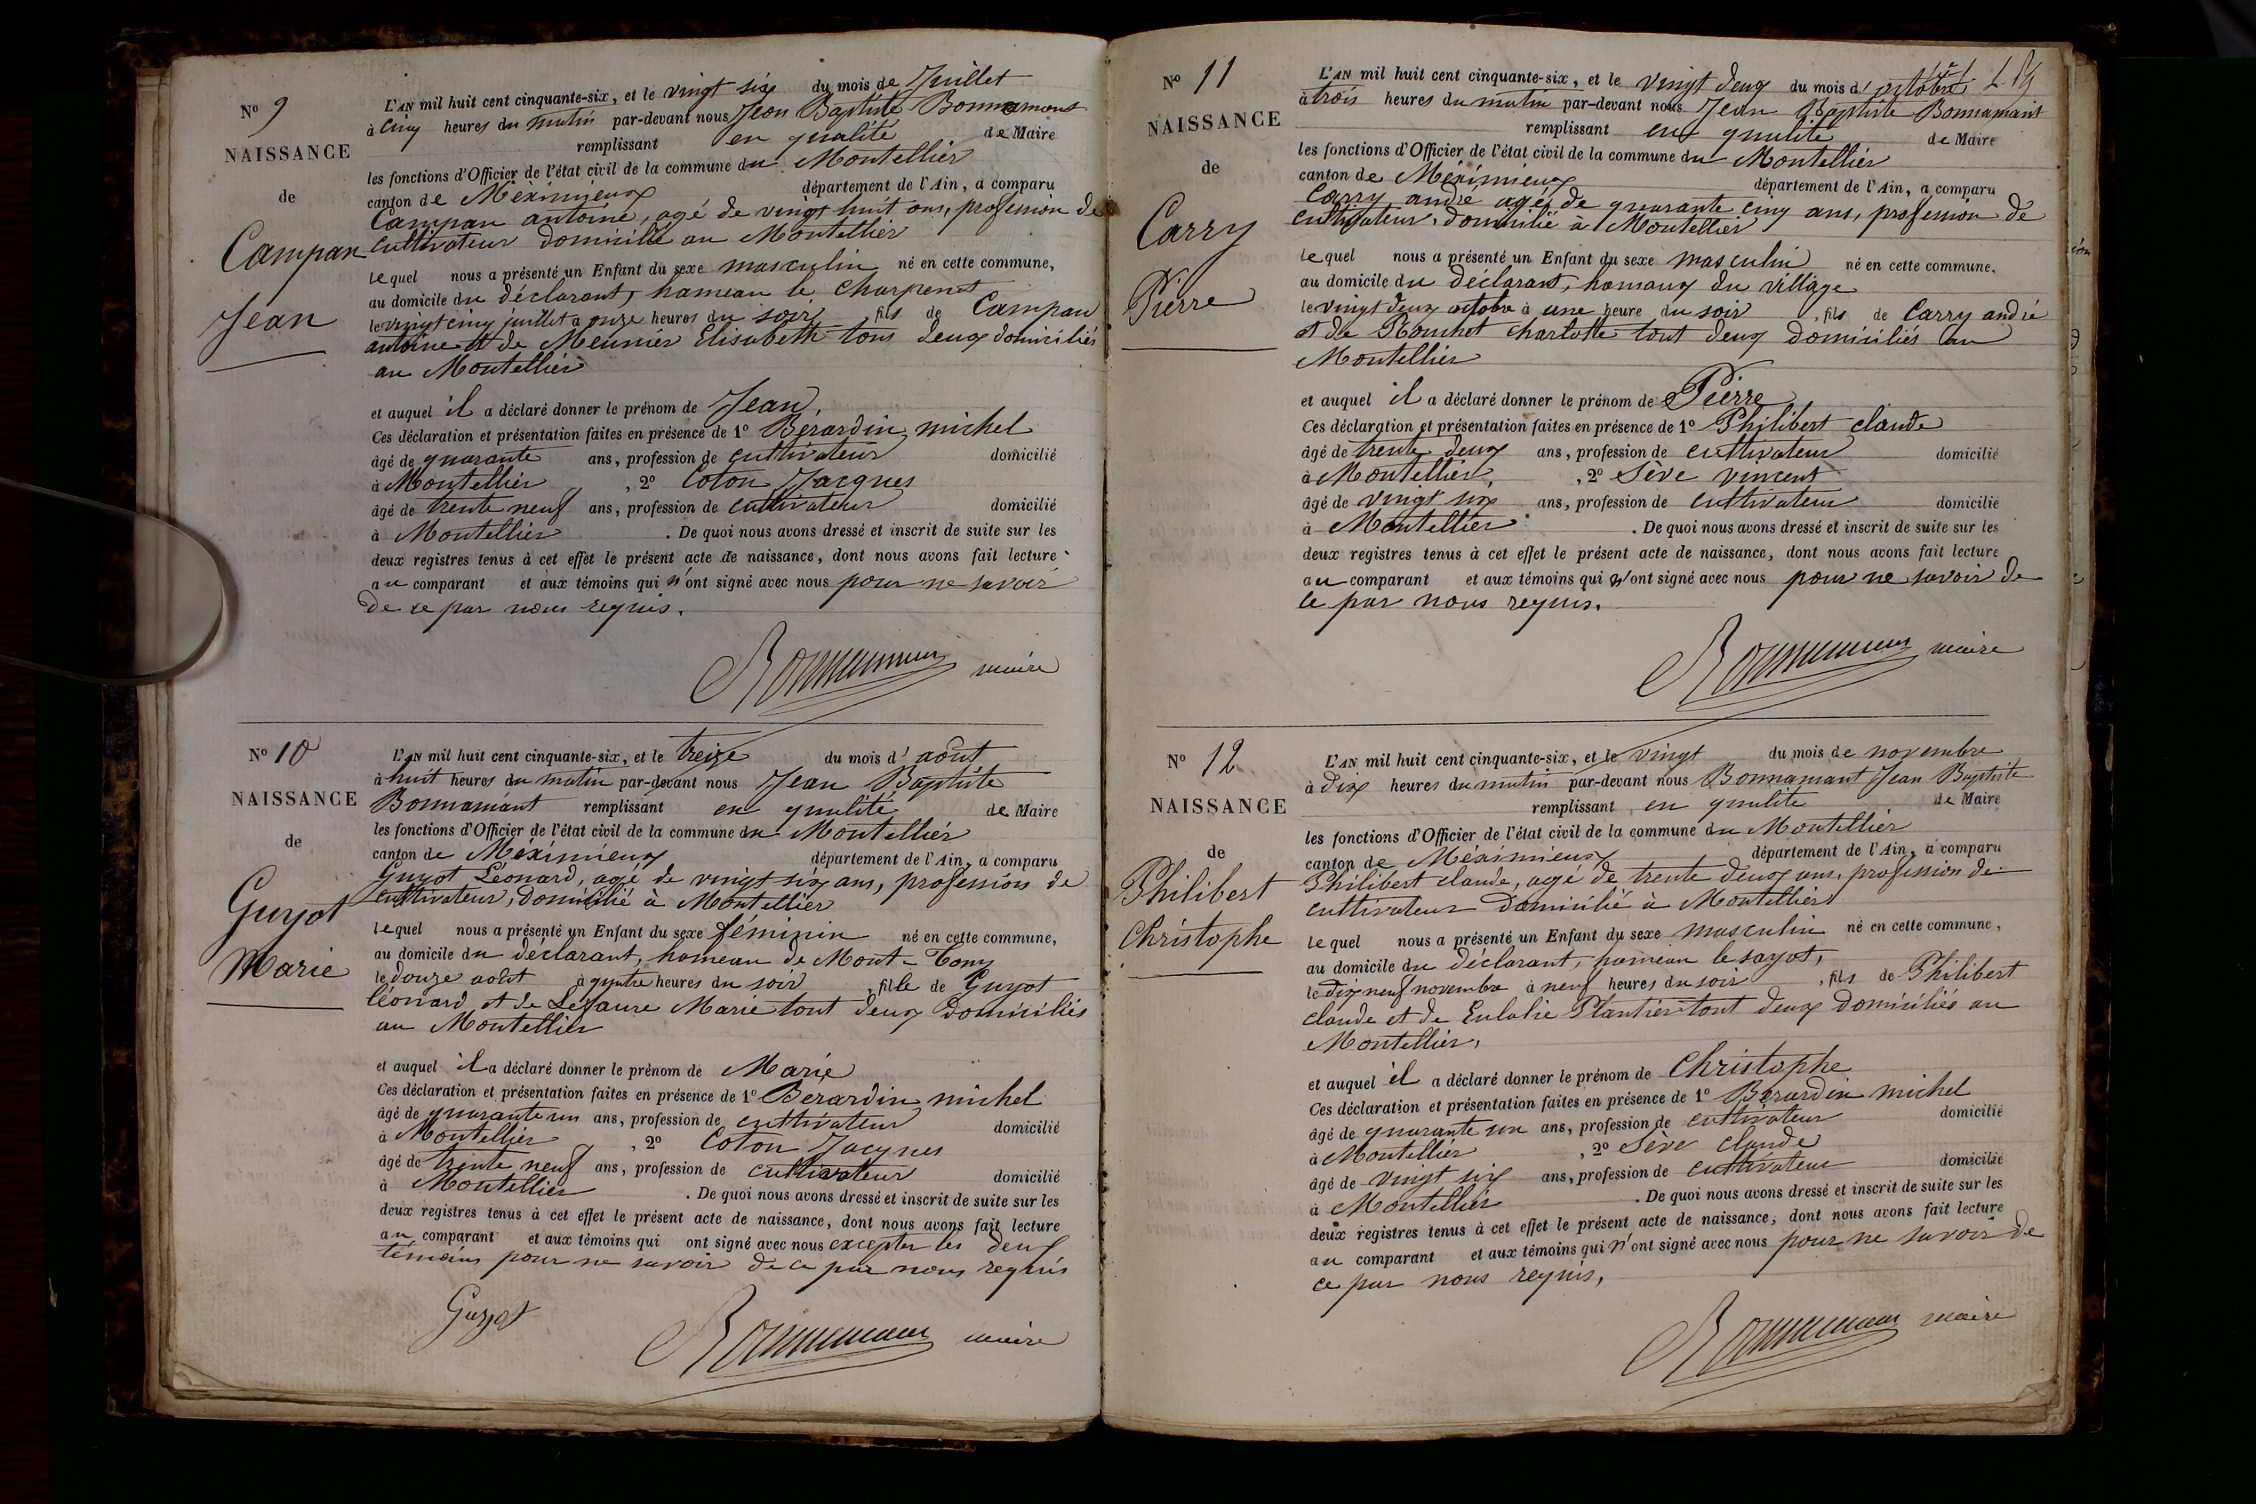 No 9
NAISSANCE
de
Campan
Jean
L'AN mil huit cent cinquante-six, et le vingt six du mois de Juillet
à cinq heures du matin par-devant nous Jean Baptiste Bonnamant
remplissant en qualité de Maire
les fonctions d'Officier de l'état civil de la commune du Montellier
canton de Méximieux département de l'Ain, a comparu
Campan antoine, agé de vingt huit ans, profession de
cultivateur domicilié au Montellier
lequel nous a présenté un Enfant du sexe masculin né en cette commune,
au domicile du déclarant, hameau le Charpenet
le vingt cinq juillet a onze heures du soir, fils de Campan
antoine et de Meunier Elisabeth tous deux domiciliés
au Montellier
et auquel il a déclaré donner le prénom de Jean,
Ces déclaration et présentation faites en présence de 1o Berardin michel
âgé de quarante ans, profession de cultivateur domicilié
à Montellier, 2o Coton Jacques
âgé de trente neuf ans, profession de cultivateur domicilié
à Montellier. De quoi nous avons dressé et inscrit de suite sur les
deux registres tenus à cet effet le présent acte de naissance, dont nous avons fait lecture
au comparant et aux témoins qui n'ont signé avec nous pour ne savoir
de ce par nous requis.
Bonnamant maire
No 10
NAISSANCE
de
Guyot
Marie
L'AN mil huit cent cinquante-six, et le treize du mois d'août
à huit heures du matin par-devant nous Jean Baptiste
Bonnamant remplissant en qualité de Maire
les fonctions d'Officier de l'état civil de la commune du Montellier
canton de Méximieux département de l'Ain, a comparu
Guyot Léonard, agé de vingt six ans, profession de
cultivateur, domicilié à Montellier
lequel nous a présenté un Enfant du sexe féminin né en cette commune,
au domicile du déclarant, hameau de Mont-
le douze août à quatre heures du soir, fille de Guyot
léonard et de Lefaure Marie tout deux Domiciliés
au Montellier
et auquel il a déclaré donner le prénom de Marie
Ces déclaration et présentation faites en présence de 1o Berardin michel
âgé de quarante un ans, profession de cultivateur domicilié
à Montellier, 2o Coton Jacques
âgé de trente neuf ans, profession de cultivateur domicilié
à Montellier. De quoi nous avons dressé et inscrit de suite sur les
deux registres tenus à cet effet le présent acte de naissance, dont nous avons fait lecture
au comparant et aux témoins qui ont signé avec nous excepter les deux
témoins pour ne savoir de ce par nous requis
Guyot Bonnamant maire
No 11
NAISSANCE
de
Carry
Pierre
L'AN mil huit cent cinquante-six, et le vingt deux du mois d'octobre
à trois heures du matin par-devant nous Jean Baptiste Bonnamant
remplissant en qualité de Maire
les fonctions d'Officier de l'état civil de la commune du Montellier
canton de Méximieux département de l'Ain, a comparu
Carry andré agé de quarante cinq ans, profession de
cultivateur, domicilié à Montellier
lequel nous a présenté un Enfant du sexe masculin né en cette commune,
au domicile du déclarant, hamaux du village
le vingt deux octobre à une heure du soir, fils de Carry andré
et de Bouchet Charlotte tout deux domiciliés au
Montellier
et auquel il a déclaré donner le prénom de Pierre
Ces déclaration et présentation faites en présence de 1o Philibert claude
âgé de trente deux ans, profession de cultivateur domicilié
à Montellier, 2o Sève vincent
âgé de vingt six ans, profession de cultivateur domicilié
à Montellier. De quoi nous avons dressé et inscrit de suite sur les
deux registres tenus à cet effet le présent acte de naissance, dont nous avons fait lecture
au comparant et aux témoins qui n'ont signé avec nous pour ne savoir de
ce par nous requis.
Bonnamant maire
No 12
NAISSANCE
de
Philibert
Christophe
L'AN mil huit cent cinquante-six, et le vingt du mois de novembre
à dix heures du matin par-devant nous Bonnamant Jean Baptiste
remplissant en qualité de Maire
les fonctions d'Officier de l'état civil de la commune du Montellier
canton de Méximieux département de l'Ain, a comparu
Philibert claude, agé de trente deux ans, profession de
cultivateur domicilié à Montellier
lequel nous a présenté un Enfant du sexe masculin né en cette commune,
au domicile du déclarant, hameau le sayot,
le dix neuf novembre à neuf heures du soir, fils de Philibert
claude et de Eulalie Plantier tout deux domiciliés au
Montellier,
et auquel il a déclaré donner le prénom de Christophe
Ces déclaration et présentation faites en présence de 1o Berardin michel
âgé de quarante un ans, profession de cultivateur domicilié
à Montellier, 2o Sève claude
âgé de vingt six ans, profession de cultivateur domicilié
à Montellier. De quoi nous avons dressé et inscrit de suite sur les
deux registres tenus à cet effet le présent acte de naissance, dont nous avons fait lecture
au comparant et aux témoins qui n'ont signé avec nous pour ne savoir de
ce par nous requis,
Bonnamant maire